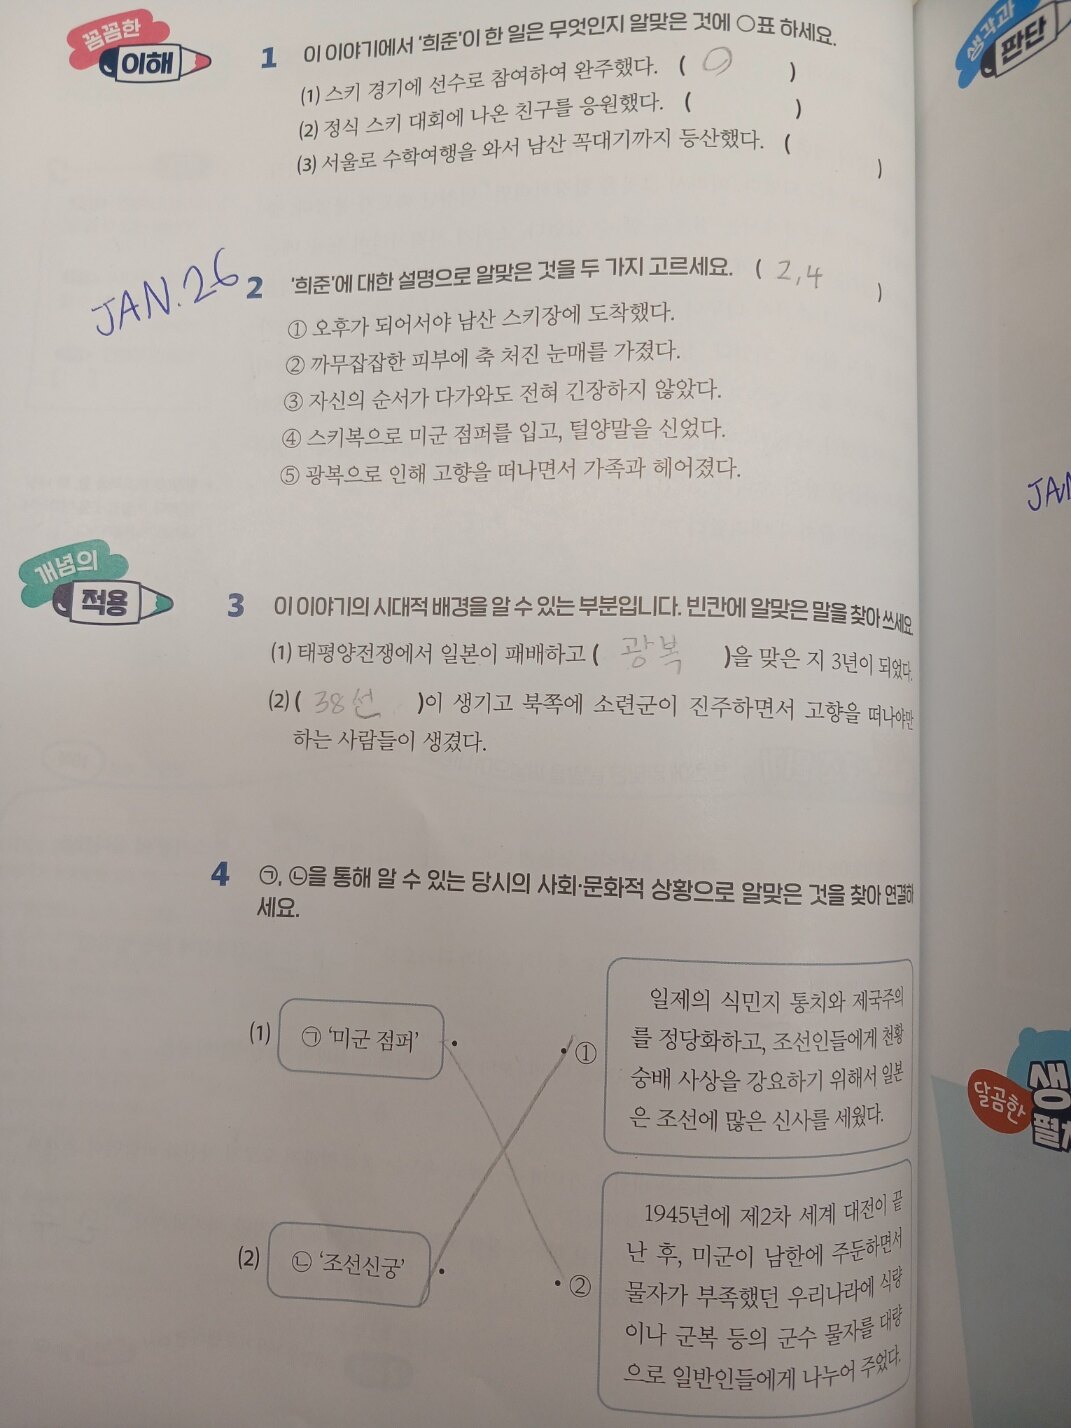 꼼꼼한
이해
1 이 이야기에서 '희준'이 한 일은 무엇인지 알맞은 것에 ○표 하세요.
(1) 스키 경기에 선수로 참여하여 완주했다. ( ○ )
(2) 정식 스키 대회에 나온 친구를 응원했다. ( )
(3) 서울로 수학여행을 와서 남산 꼭대기까지 등산했다. ( )
JAN.26
2 '희준'에 대한 설명으로 알맞은 것을 두 가지 고르세요. ( 2,4 )
① 오후가 되어서야 남산 스키장에 도착했다.
② 까무잡잡한 피부에 축 처진 눈매를 가졌다.
③ 자신의 순서가 다가와도 전혀 긴장하지 않았다.
④ 스키복으로 미군 점퍼를 입고, 털양말을 신었다.
⑤ 광복으로 인해 고향을 떠나면서 가족과 헤어졌다.
개념의
적용
3 이 이야기의 시대적 배경을 알 수 있는 부분입니다. 빈칸에 알맞은 말을 찾아 쓰세요.
(1) 태평양전쟁에서 일본이 패배하고 ( 광복 )을 맞은 지 3년이 되었다.
(2) ( 38선 )이 생기고 북쪽에 소련군이 진주하면서 고향을 떠나야만
하는 사람들이 생겼다.
4 ㉠, ㉡을 통해 알 수 있는 당시의 사회·문화적 상황으로 알맞은 것을 찾아 연결하
세요.
(1) ㉠ '미군 점퍼'
(2) ㉡ '조선신궁'
① 일제의 식민지 통치와 제국주의
를 정당화하고, 조선인들에게 천황
숭배 사상을 강요하기 위해서 일본
은 조선에 많은 신사를 세웠다.
② 1945년에 제2차 세계 대전이 끝
난 후, 미군이 남한에 주둔하면서
물자가 부족했던 우리나라에 식량
이나 군복 등의 군수 물자를 대량
으로 일반인들에게 나누어 주었다.
생각과
판단
JAN
달콤한
생